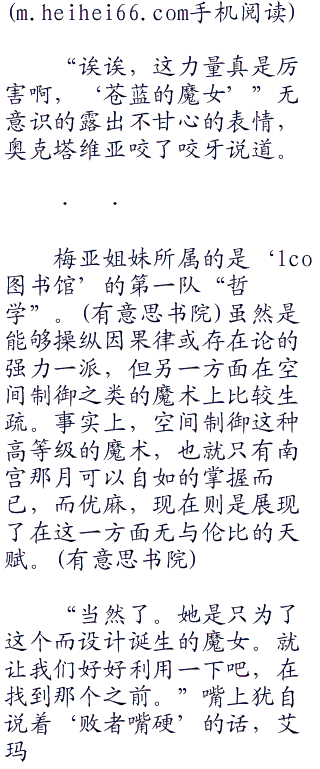 (m.heihei66.com手机阅读)
“诶诶，这力量真是厉
害啊，‘苍蓝的魔女’”无
意识的露出不甘心的表情，
奥克塔维亚咬了咬牙说道。
· ·
梅亚姐妹所属的是‘lco
图书馆’的第一队“哲
学”。(有意思书院)虽然是
能够操纵因果律或存在论的
强力一派，但另一方面在空
间制御之类的魔术上比较生
疏。事实上，空间制御这种
高等级的魔术，也就只有南
宫那月可以自如的掌握而
已，而优麻，现在则是展现
了在这一方面无与伦比的天
赋。(有意思书院)
“当然了。她是只为了
这个而设计诞生的魔女。就
让我们好好利用一下吧，在
找到那个之前。”嘴上犹自
说着‘败者嘴硬’的话，艾
玛